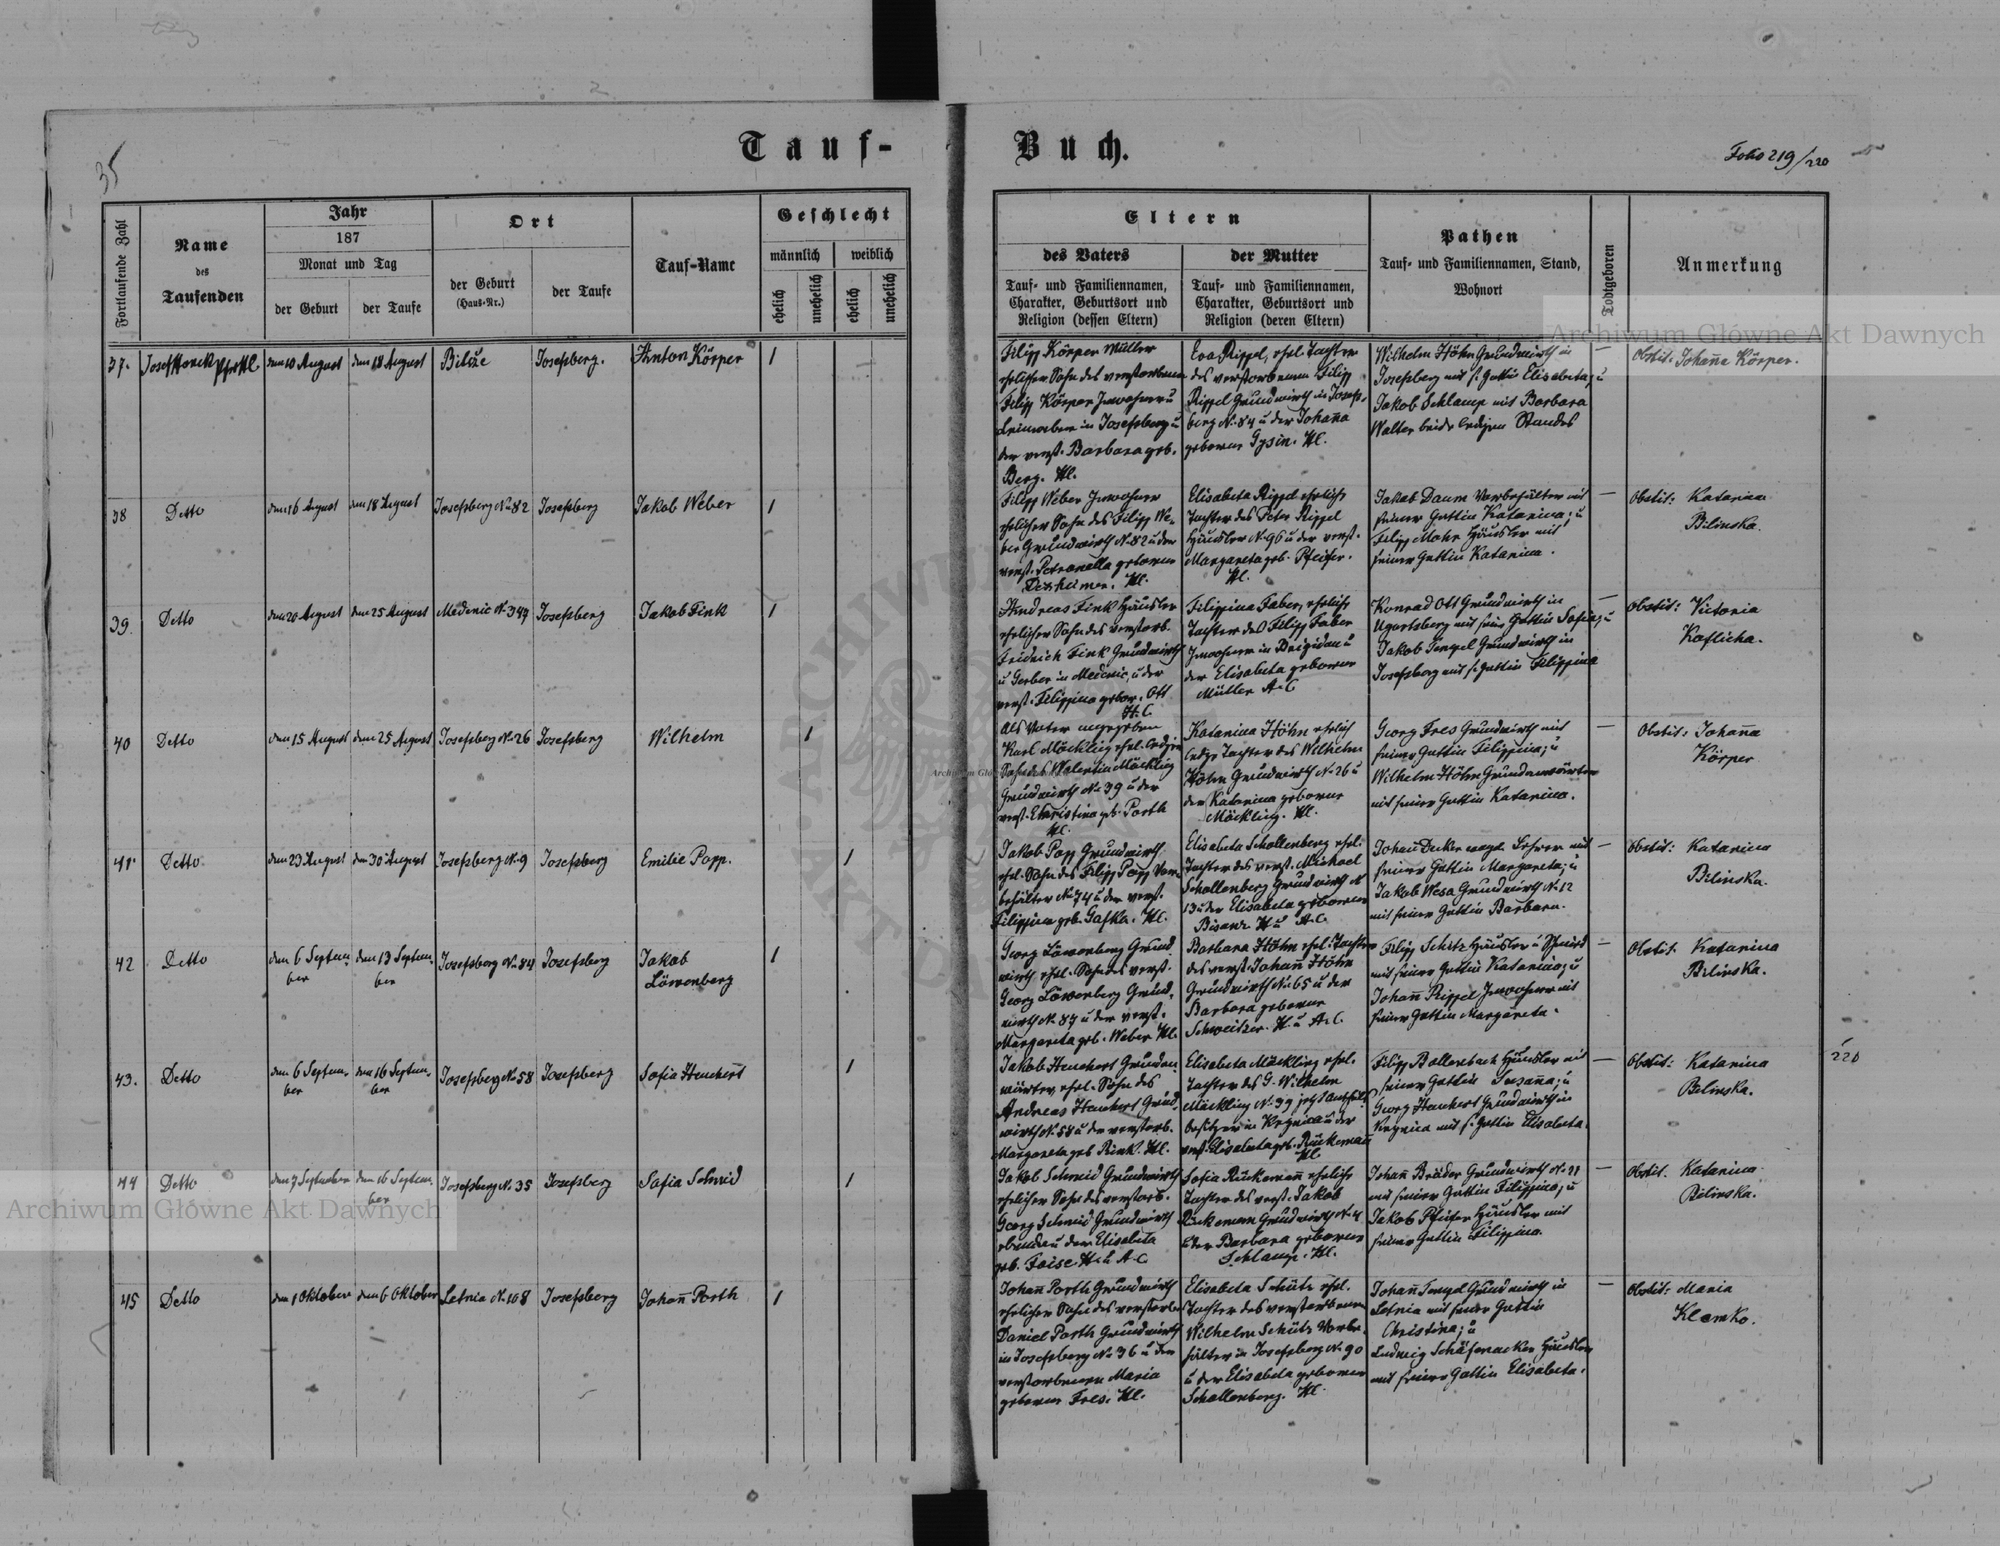 35
Tauf-
Buch.
Folio 219/220
Fortlaufende Zahl
Name
des
Taufenden
Jahr
187
Monat und Tag
der Geburt
der Taufe
Ort
der Geburt
(Haus-Nr.)
der Taufe
Tauf-Name
Geschlecht
männlich
weiblich
ehelich
unehelich
ehelich
unehelich
Eltern
des Vaters
Tauf- und Familiennamen,
Charakter, Geburtsort und
Religion (dessen Eltern)
der Mutter
Tauf- und Familiennamen,
Charakter, Geburtsort und
Religion (deren Eltern)
Pathen
Tauf- und Familiennamen, Stand,
Wohnort
Todtgeboren
Anmerkung
37. Josef Honck den 10 August den 18 August Bilze Josefsberg. Anton Körper 1
Filipp Körper Müller
ehelicher Sohn des verstorbenen
Filipp Körper Inwohner u
Leinweber in Josefsberg u
der verst. Barbara geb.
Berg. Hl.
Eva Rippel, ehel. Tochter
des verstorbenen Filipp
Rippel Grundwirth in Josefs-
berg N. 84 u der Johanna
geborene Gysin. Hl.
Wilhelm Höhn Grundwirth in
Josefsberg mit s. Gattin Elisabeta; u
Jakob Schlamp mit Barbara
Walter beide ledigen Standes
— Obstit: Johanna Körper.
38 Detto den 16 August den 18 August Josefsberg No 82 Josefsberg Jakob Weber 1
Filipp Weber Inwohner
ehelicher Sohn des Filipp We-
ber Grundwirth N. 82 u der
verst. Petronella geborene
Hl.
Elisabeta Rippel ehelich
Tochter des Peter Rippel
Häusler N. 96 u der verst.
Margareta geb. Pfeifer.
Hl.
Jakob Daum Vorbehälter mit
seiner Gattin Katarina; u
Filipp Mohr Häusler mit
seiner Gattin Katarina.
— Obstit: Katarina
Bilinska.
39. Detto den 20 August den 25 August Medenic N. 347 Josefsberg Jakob Fink 1
Andreas Fink Häusler
ehelicher Sohn des verstorb.
Fridrich Fink Grundwirth
u Gerber in Medenic, u der
verst. Filippina gebor. Ott
H.C.
Filippina Faber, ehelich
Tochter des Filipp Faber
Inwohner in Brigidau u
der Elisabeta geborene
Müller A.C
Konrad Ott Grundwirth in
Ugartsberg mit seiner Gattin Sofia; u
Jakob Tengel Grundwirth in
Josefsberg mit s. Gattin Filippina
— Obstit: Victoria
Kaflicka.
40 Detto den 15 August den 25 August Josefsberg N. 26 Josefsberg Wilhelm 1
Als Vater angegeben
Karl Möckling ehel. ledigen
Sohn des Valentin Möckling
Grundwirth N. 39 u der
verst. Christina geb. Porth
Hl.
Katarina Höhn ehelich
ledige Tochter des Wilhelm
Höhn Grundwirth N. 26 u
der Katarina geborene
Möckling. Hl.
Georg Fres Grundwirth mit
seiner Gattin Filippina; u
Wilhelm Höhn
mit seiner Gattin Katarina.
— Obstit: Johanna
Körper
41. Detto den 23 August den 30 August Josefsberg N. 9 Josefsberg Emilie Popp. 1
Jakob Popp Grundwirth
ehel. Sohn des Filipp Popp Vor-
behälter N. 74 u der verst.
Filippina geb. Gafka. Hl.
Elisabeta Schallenberg ehel.
Tochter des verst. Michael
Schallenberg Grundwirth N
13 u der Elisabeta geborene
Bisanz H u A.C.
Johan Decker evagl. Lehrer mit
seiner Gattin Margareta; u
Jakob Wesa Grundwirth N. 12
mit seiner Gattin Barbara.
— Obstit: Katarina
Bilinska.
42 Detto den 6 Septem- den 13 Septem- Josefsberg No 84 Josefsberg Jakob 1
ber ber Löwenberg
Georg Löwenberg Grund-
wirth ehel. Sohn des verst.
Georg Löwenberg Grund-
wirth N. 87 u der verst.
Margareta geb. Weber Hl.
Barbara Höhn ehel. Tochter
des verst. Johann Höhn
Grundwirth No 65 u der
Barbara geborene
Schweitzer. H. u A.C.
Filipp Schitz Häusler u Schmied
mit seiner Gattin Katarina; u
Johann Rippel Inwohner mit
seiner Gattin Margareta.
— Obstit: Katarina
Bilinska.
43. Detto den 6 Septem- den 16 Septem- Josefsberg No 58 Josefsberg Sofia Heuchert 1
ber ber
Jakob Heuchert
ehel. Sohn des
Andreas Heuchert Grund-
wirth N. 58 u der verstorb.
Margareta geb. Rink. Hl.
Elisabeta Möckling ehel.
Tochter des G. Wilhelm
Möckling N. 39 jetzt
besitzer in Krynica u der
verst. Elisabeta geb. Rückemann
Hl
Filipp Bollenbach Häusler mit
seiner Gattin Susanna; u
Georg Heuchert Grundwirth in
Krynica mit s. Gattin Elisabeta.
— Obstit: Katarina
Bilinska.
220
44 Detto den 7 September den 16 Septem- Josefsberg N. 35 Josefsberg Sofia Schmid 1
ber
Jakob Schmid Grundwirth
ehelicher Sohn des verstorb.
Georg Schmid Grundwirth
ebenda u der Elisabeta
geb. Faise H. u A.C
Sofia Rückemann ehelich
Tochter des verst. Jakob
Rückemann Grundwirth N. 4
u der Barbara geborene
Schlamp. Hl.
Johann Bräder Grundwirth N. 21
mit seiner Gattin Filippina; u
Jakob Pfeifer Häusler mit
seiner Gattin Filippina.
— Obstit. Katarina
Bilinska.
45 Detto den 1 Oktober den 6 Oktober Letnia N. 108 Josefsberg Johann Porth 1
Johann Porth Grundwirth
ehelicher Sohn des verstorbe
Daniel Porth Grundwirth
in Josefsberg N. 36 u der
verstorbenen Maria
geborene Fres. Hl.
Elisabeta Schütz ehel.
Tochter des verstorbenen
Wilhelm Schütz Vorbe-
hälter in Josefsberg N. 90
u der Elisabeta geborene
Schallenberg. Hl.
Johann Tengel Grundwirth in
Letnia mit seiner Gattin
Christina; u
Ludwig Schäfenacker, Häusler
mit seiner Gattin Elisabeta.
— Obstit: Maria
Klemko.
Archiwum Główne Akt Dawnych
Archiwum Główne Akt Dawnych